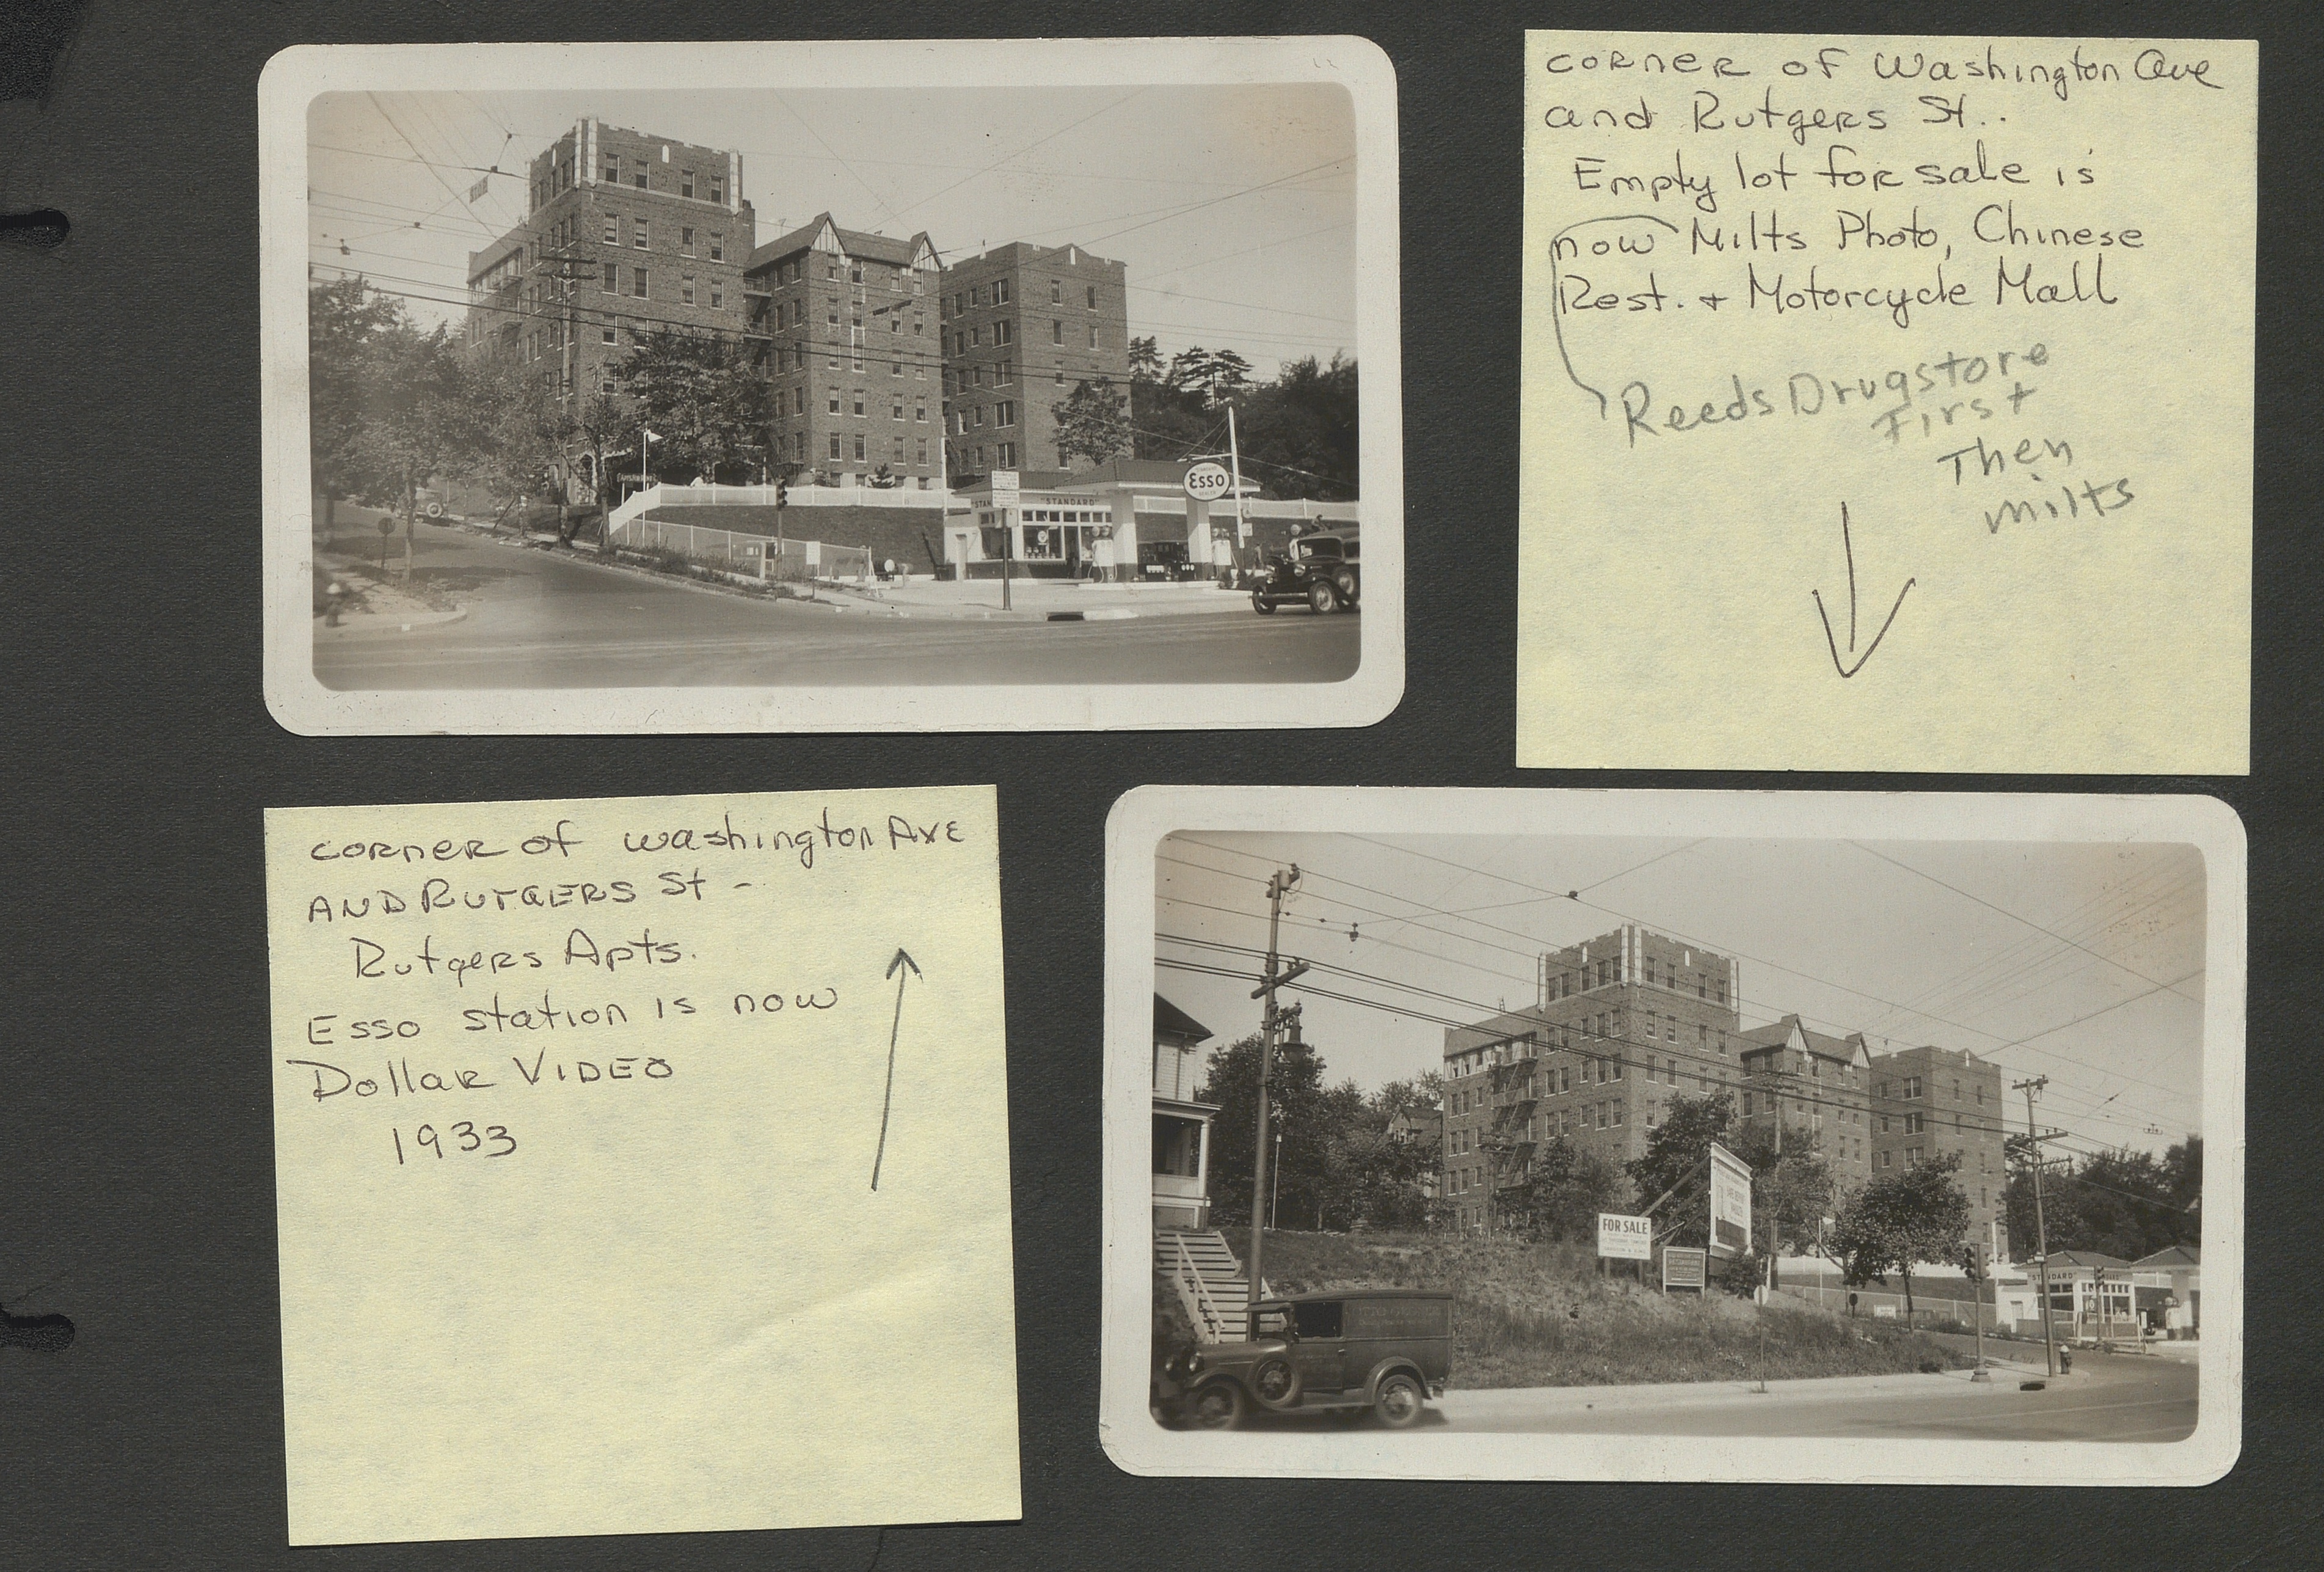 Esso
"STANDARD"
corner of Washington Ave
and Rutgers St..
Empty lot for sale is
now Milts Photo, Chinese
Rest. + Motorcycle Mall
Reeds Drugstore
First
Then
Milts
corner of Washington Ave
AND RUTGERS St -
Rutgers Apts.
Esso station is now
Dollar VIDEO
1933
FOR SALE
"STANDARD"